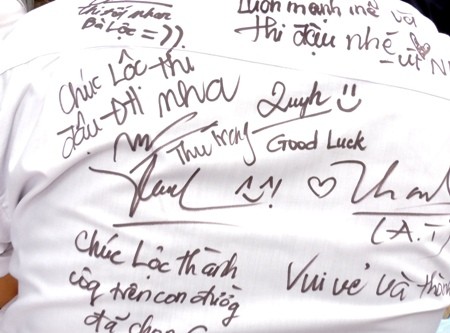 thi tốt nhen
Bà Lộc =))
Luôn mạnh mẽ và
thi đậu nhé
Chúc Lộc thi
đậu ĐH nha
Quyh
Thu trang
Good Luck
^^!
(A.T)
Chúc Lộc thành
côg trên con đườg
đã chọn
Vui vẻ và thàn